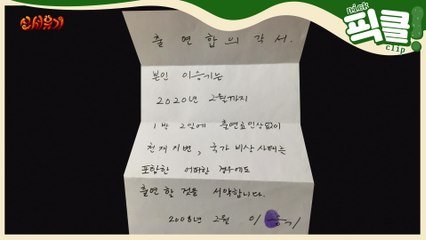 신서유기
pick
픽클!
clip
출연합의각서.
본인 이승기는
2020년 2월까지
1박 2일에 출연료인상없이
천재지변, 국가 비상사태를
포함한 어떠한 경우에도
출연 할 것을 서약합니다.
2008년 2월 이 승기